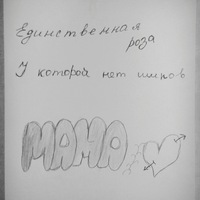 Единственная
роза
У которой нет шипов
МАМА